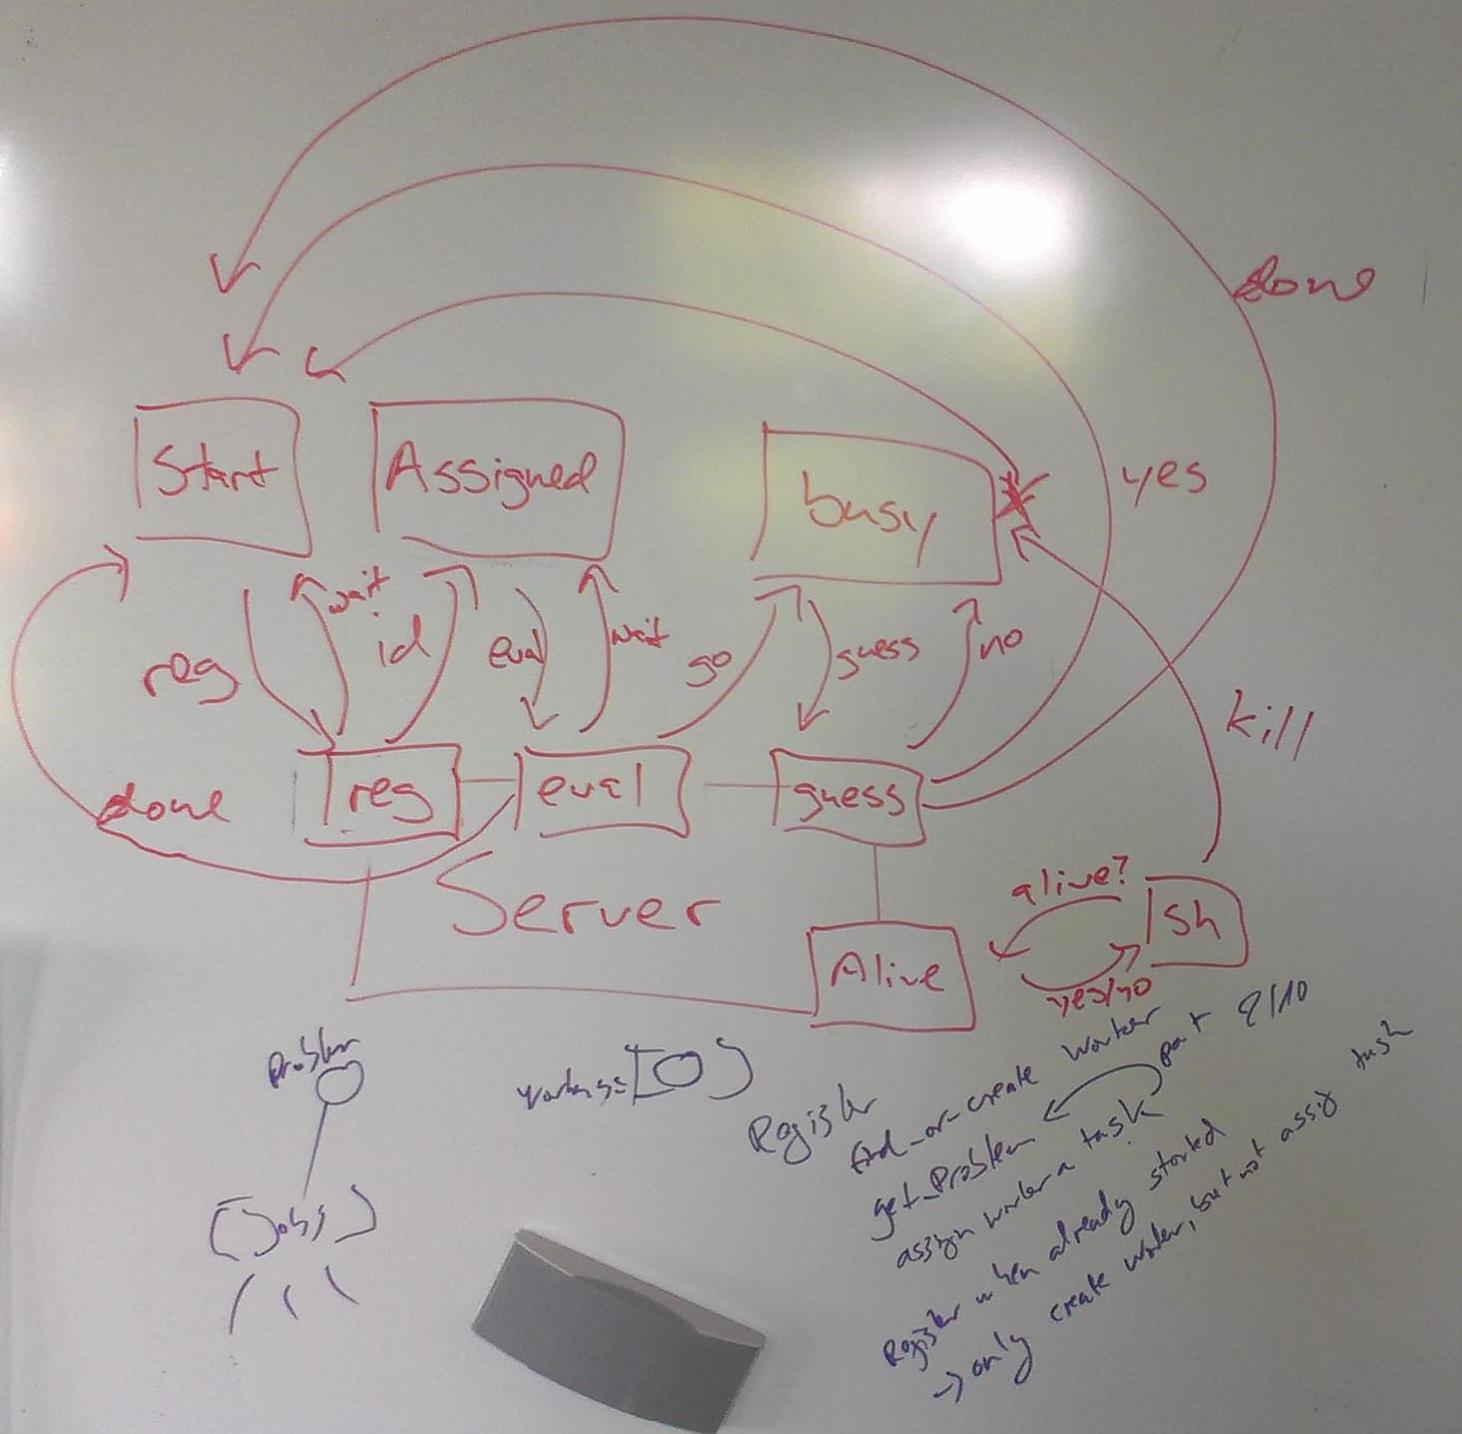 done
Start
Assigned
busy
yes
reg
wait
id
eval
wait
go
guess
no
kill
done
reg
eval
guess
Server
alive?
Sh
Alive
yes/no
Problem
workers=[O]
[Jobs]
Register
find_or_create worker
get_Problem
part 2/10
assign worker a task
Register when already started
→ only create worker, but not assig task